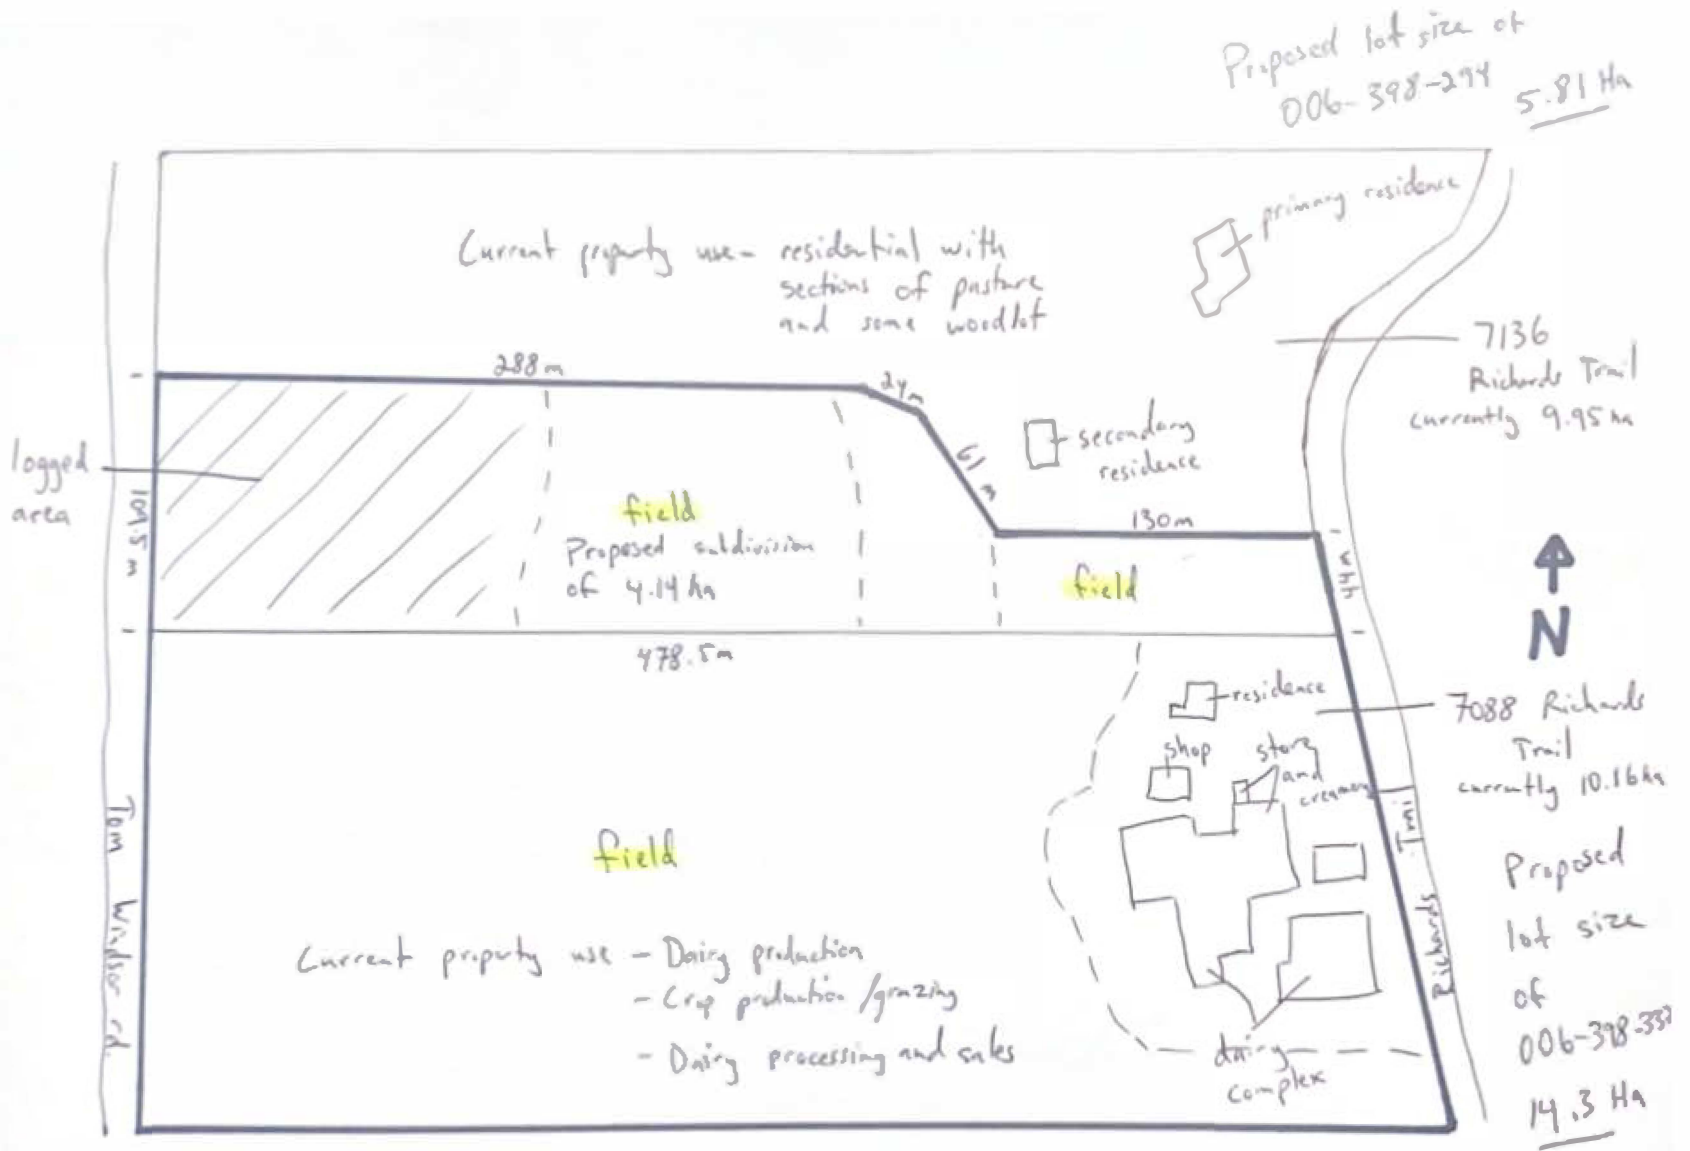 Proposed lot size of
006-398-294
5.81 Ha
primary residence
Current property use - residential with
sections of pasture
and some woodlot
7136
Richards Trail
currently 9.95 ha
288m
24m
61 m
secondary
residence
130m
logged
area
109.5 m
field
Proposed subdivision
of 4.14 ha
field
44m
N
478.5m
residence
7088 Richards
Trail
currently 10.16ha
shop
store
and
creamery
Richards Trail
Tom Windsor rd.
field
Proposed
lot size
of
14.3 Ha
Current property use - Dairy production
- Crop production/grazing
- Dairy processing and sales
dairy
complex